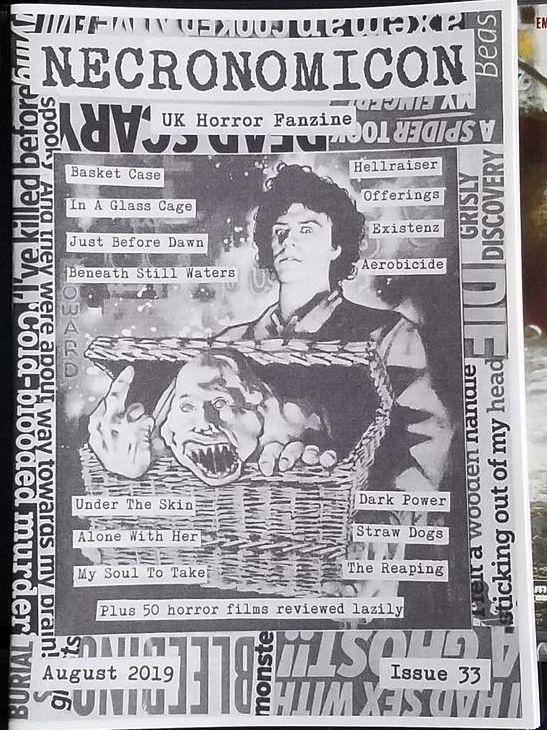 axeman
COOKED ALIVE
EVIL
Beds
dying
NECRONOMICON
MY FINGER!
A SPIDER TOOK
DEAD SCARY
UK Horror Fanzine
Basket Case
Hellraiser
In A Glass Cage
Offerings
Just Before Dawn
Existenz
Beneath Still Waters
Aerobicide
GRISLY
DISCOVERY
DIE
spooky And they were about way towards my brain!
I've killed before
cold-blooded murder
BURIAL
Under The Skin
Dark Power
Alone With Her
Straw Dogs
My Soul To Take
The Reaping
Plus 50 horror films reviewed lazily
felt a wooden handle
sticking out of my head
August 2019
Issue 33
BLEEDING
monste
I HAD SEX WITH
A GHOST!!